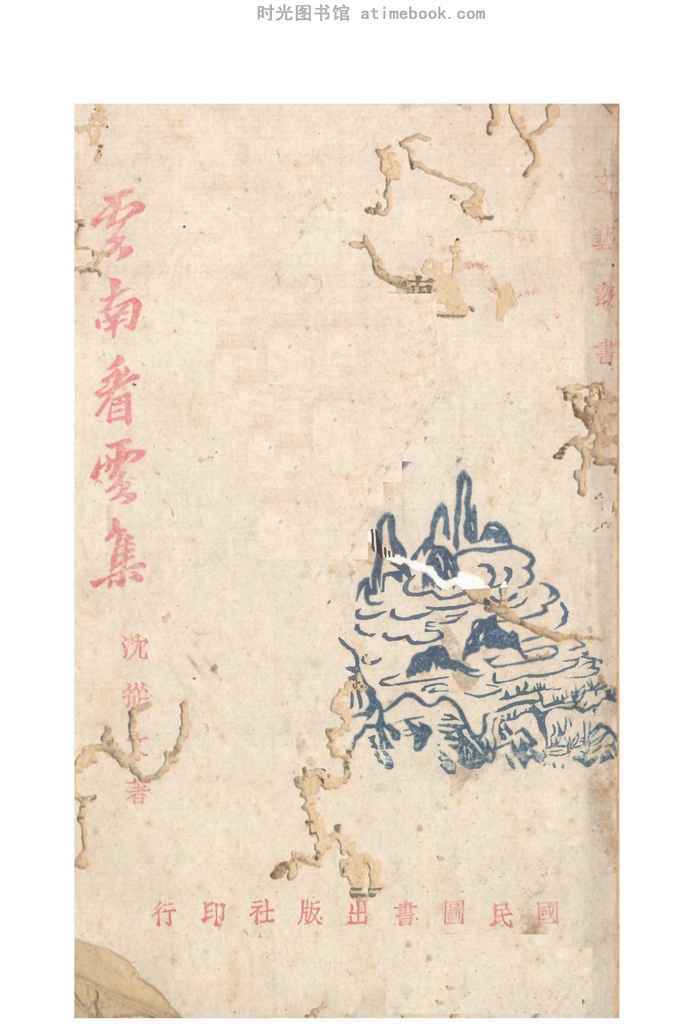 时光图书馆 atimebook.com
雲南看雲集
沈從文著
國民圖書出版社印行